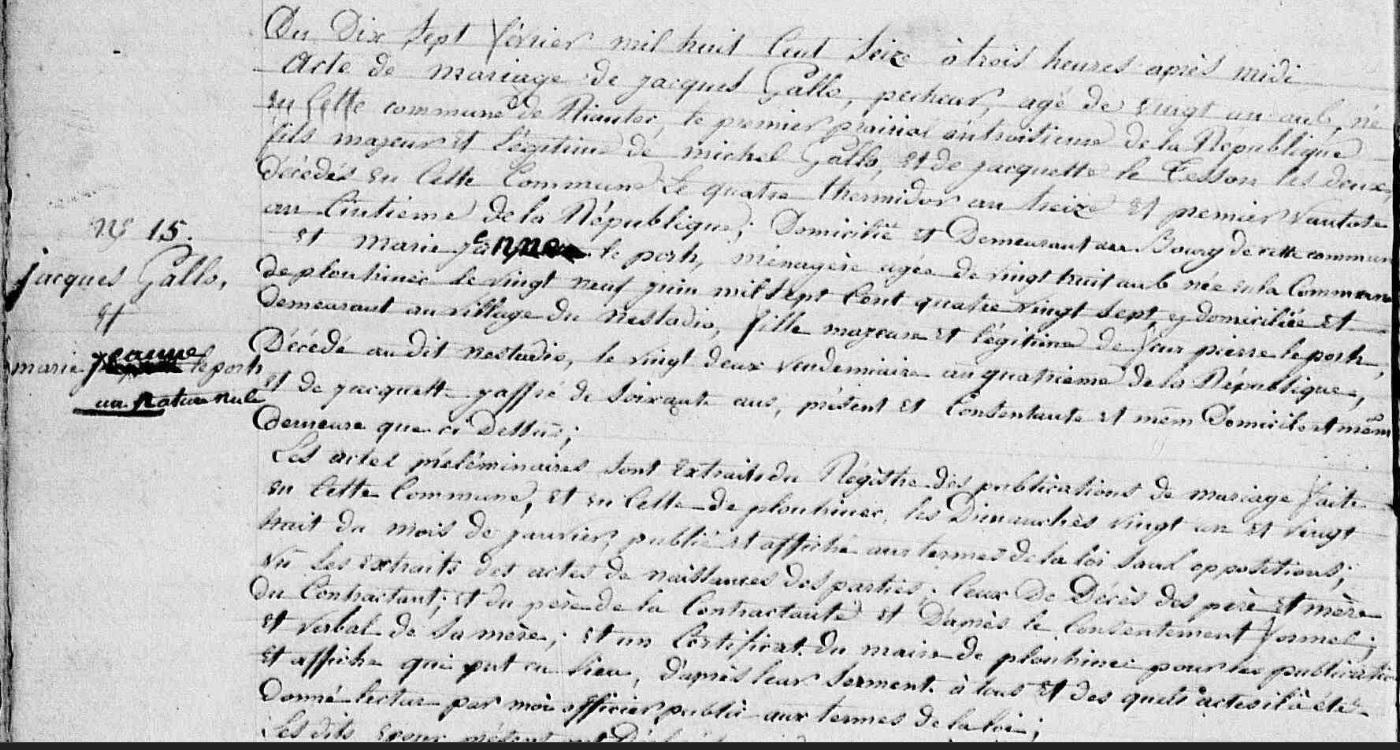 Du Dix Sept février mil huit Cent Seize à trois heures après midi
Acte de mariage de jacques Gallo, pecheur, agé de vingt un ans, né
en Cette commune de Riantec, le premier prairial an troisieme de la République
fils majeur et légitime de michel Gallo, et de jacquette le Tesson les deux
décédés en Cette Commune Le quatre thermidor an treize et premier vantose
an Cintieme de la République; Domicilié et Demeurant au Bourg de cette commune
N° 15.
jacques Gallo,
et
marie jeanne le porh
et marie jeanne le porh, ménagère agée de vingt huit ans née en la Commune
de plouhinec le vingt neuf juin mil Sept Cent quatre vingt Sept y domiciliée et
demeurant au village du Nestadio, fille majeure et légitime de feu pierre le porh,
Décédé au dit Nestadio, le vingt deux vendemiaire an quatrieme de la République,
et de jacquette yaffré de Soixante ans, présent et Consentante et mem Domicile et mem
demeure que ci Dessus;
Les actes préléminaires sont extraits du Régistre des publications de mariage faite
en Cette Commune, et en Celle de plouhinec, les Dimanches vingt un et vingt
huit du mois de janvier, publié et affiché aux termes de la loi sans oppositions;
vu les extraits des actes de naissances des parties; Ceux de Décès des père et mère
du Contractant; et du père de la Contractante et D'après le Consentement formel;
et verbal de Sa mère; et un Certificat du maire de plouhinec pour les publications
et affiche qui ont eu lieu, d'après leur serment à tous et des quels actes il à été
donné lecture par moi officier public aux termes de la loi;
Les dits époux présent ont